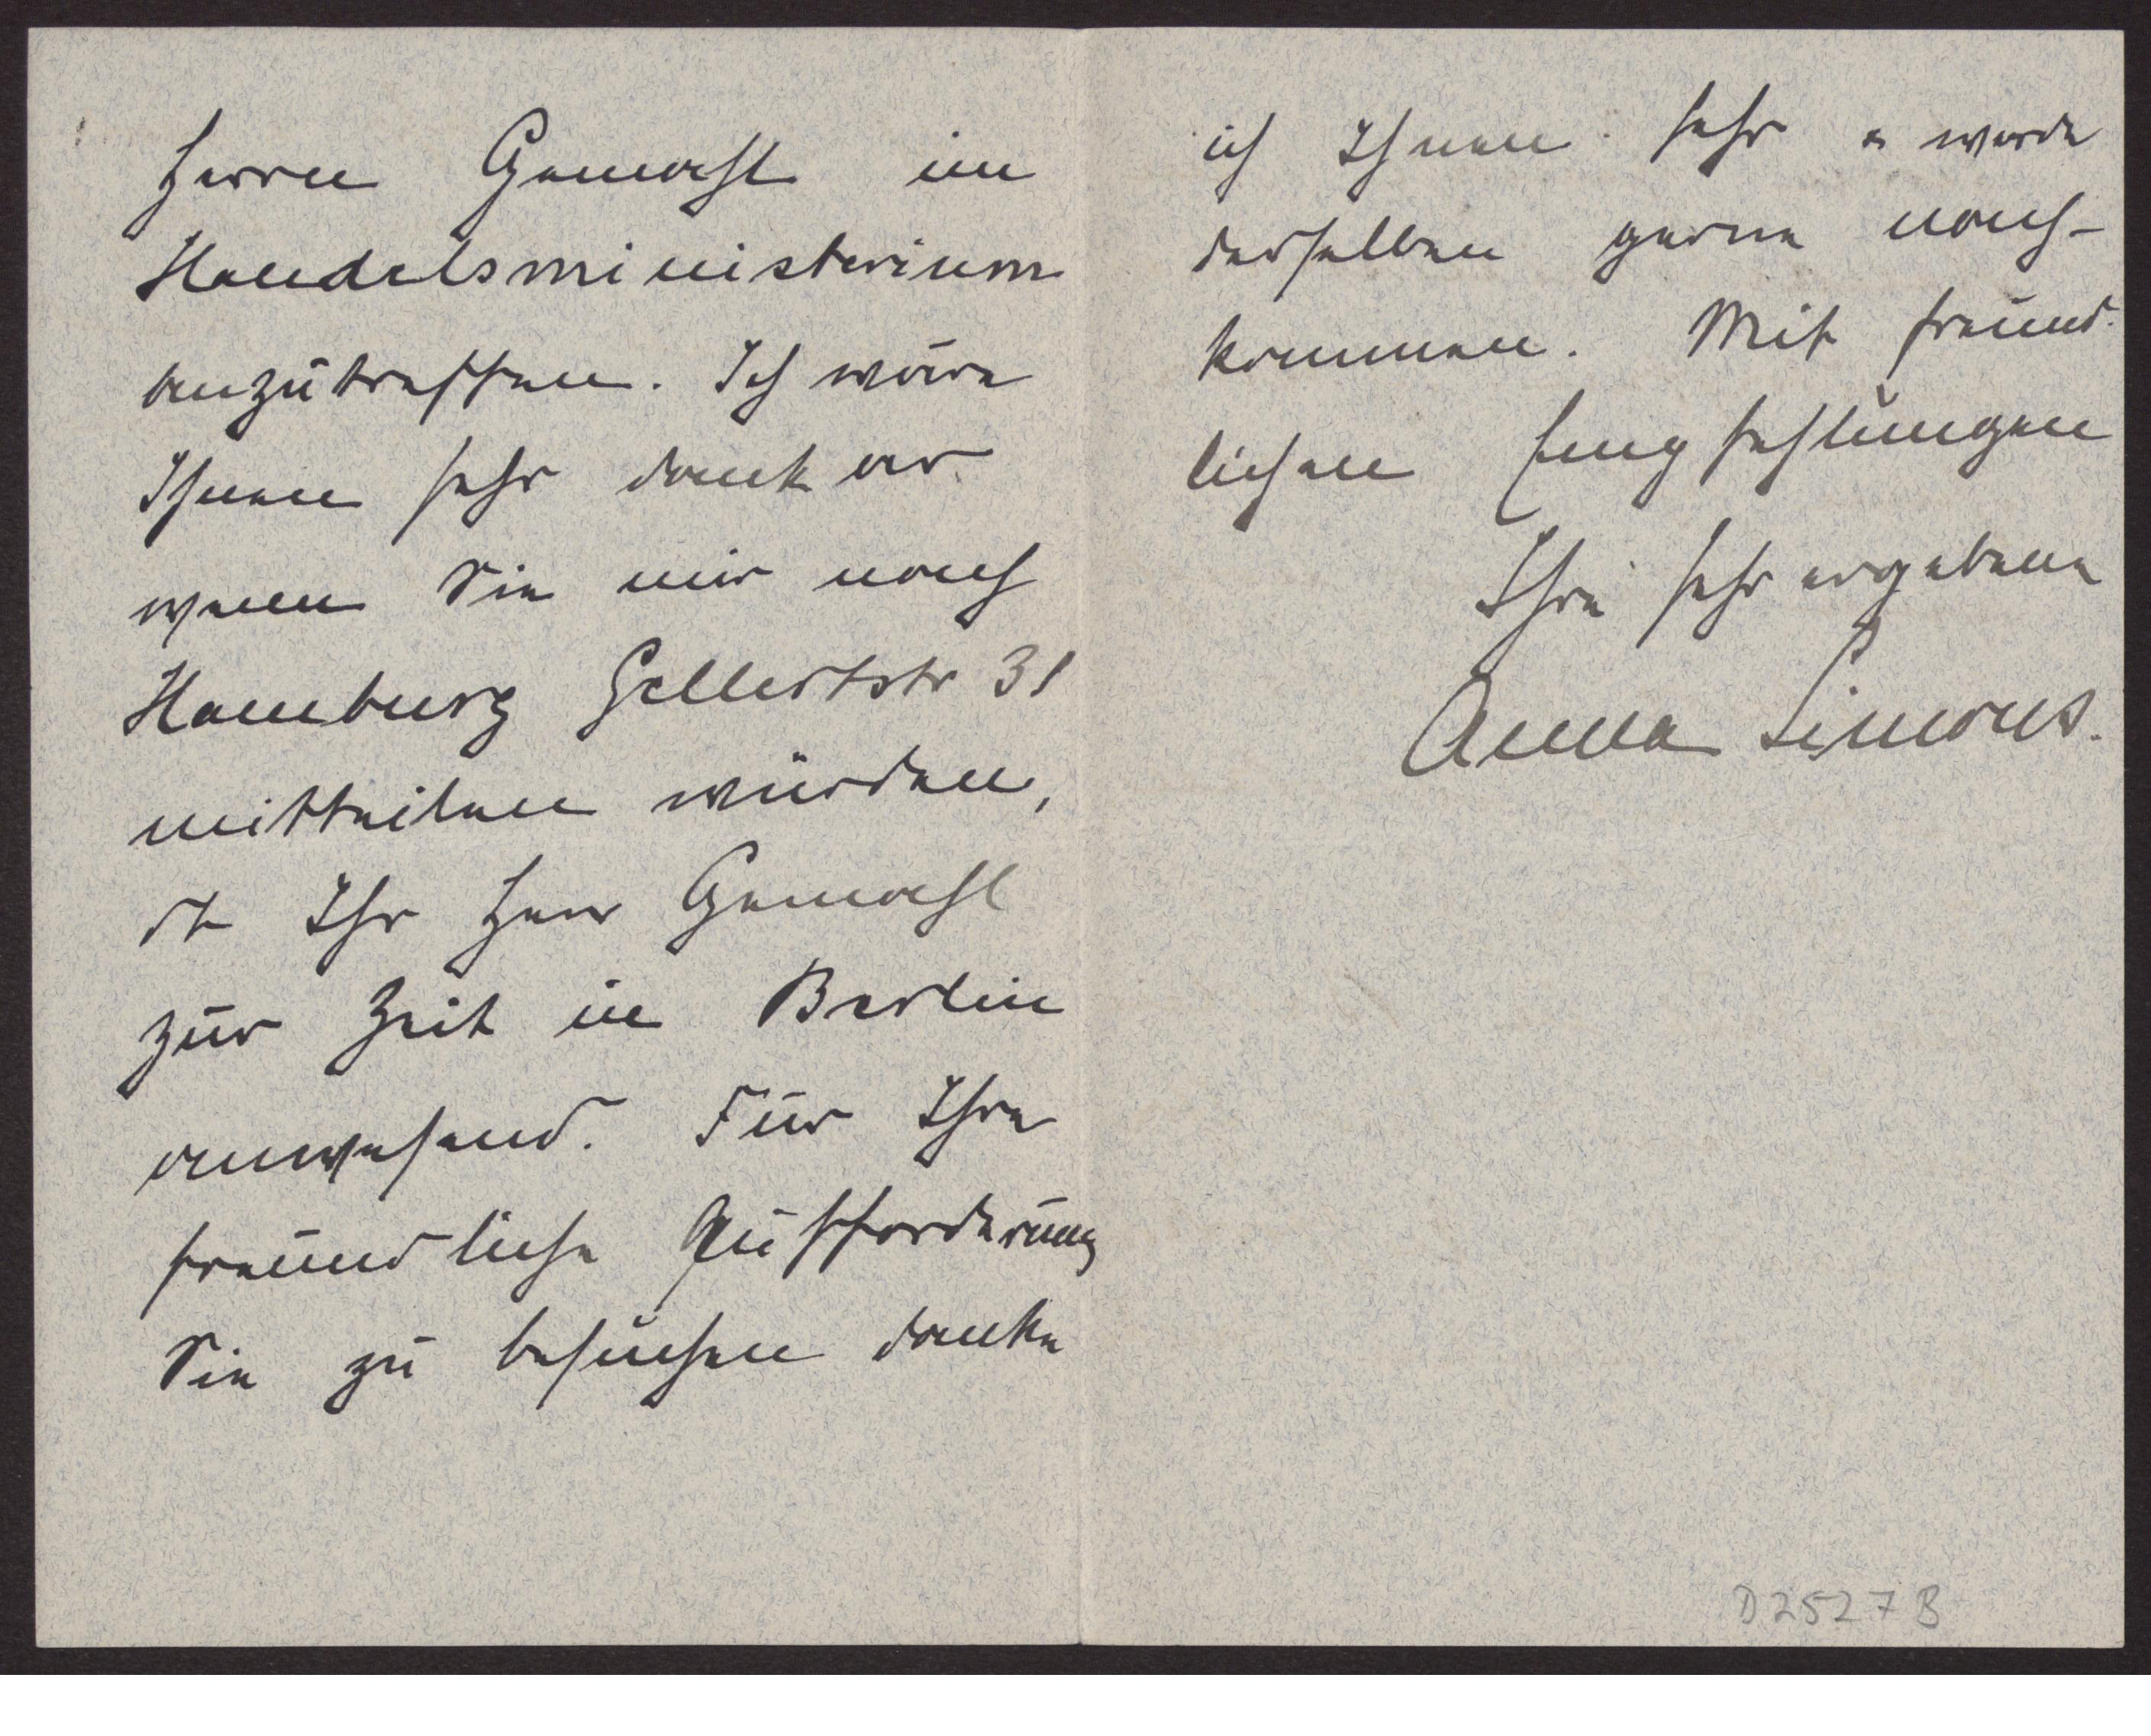 Herrn Gemahl im
Handelsministerium
anzutreffen. Ich wäre
Ihnen sehr dankbar
wenn Sie mir nach
Hamburg Gellertstr 31
mitteilen würden,
ob Ihr Herr Gemahl
zur Zeit in Berlin
anwesend. Für Ihre
freundliche Aufforderung
Sie zu besuchen danke
ich Ihnen sehr u werde
derselben gerne nach-
kommen. Mit freund-
lichen Empfehlungen
Ihre sehr ergebene
Anna Simons.
D 2527 B